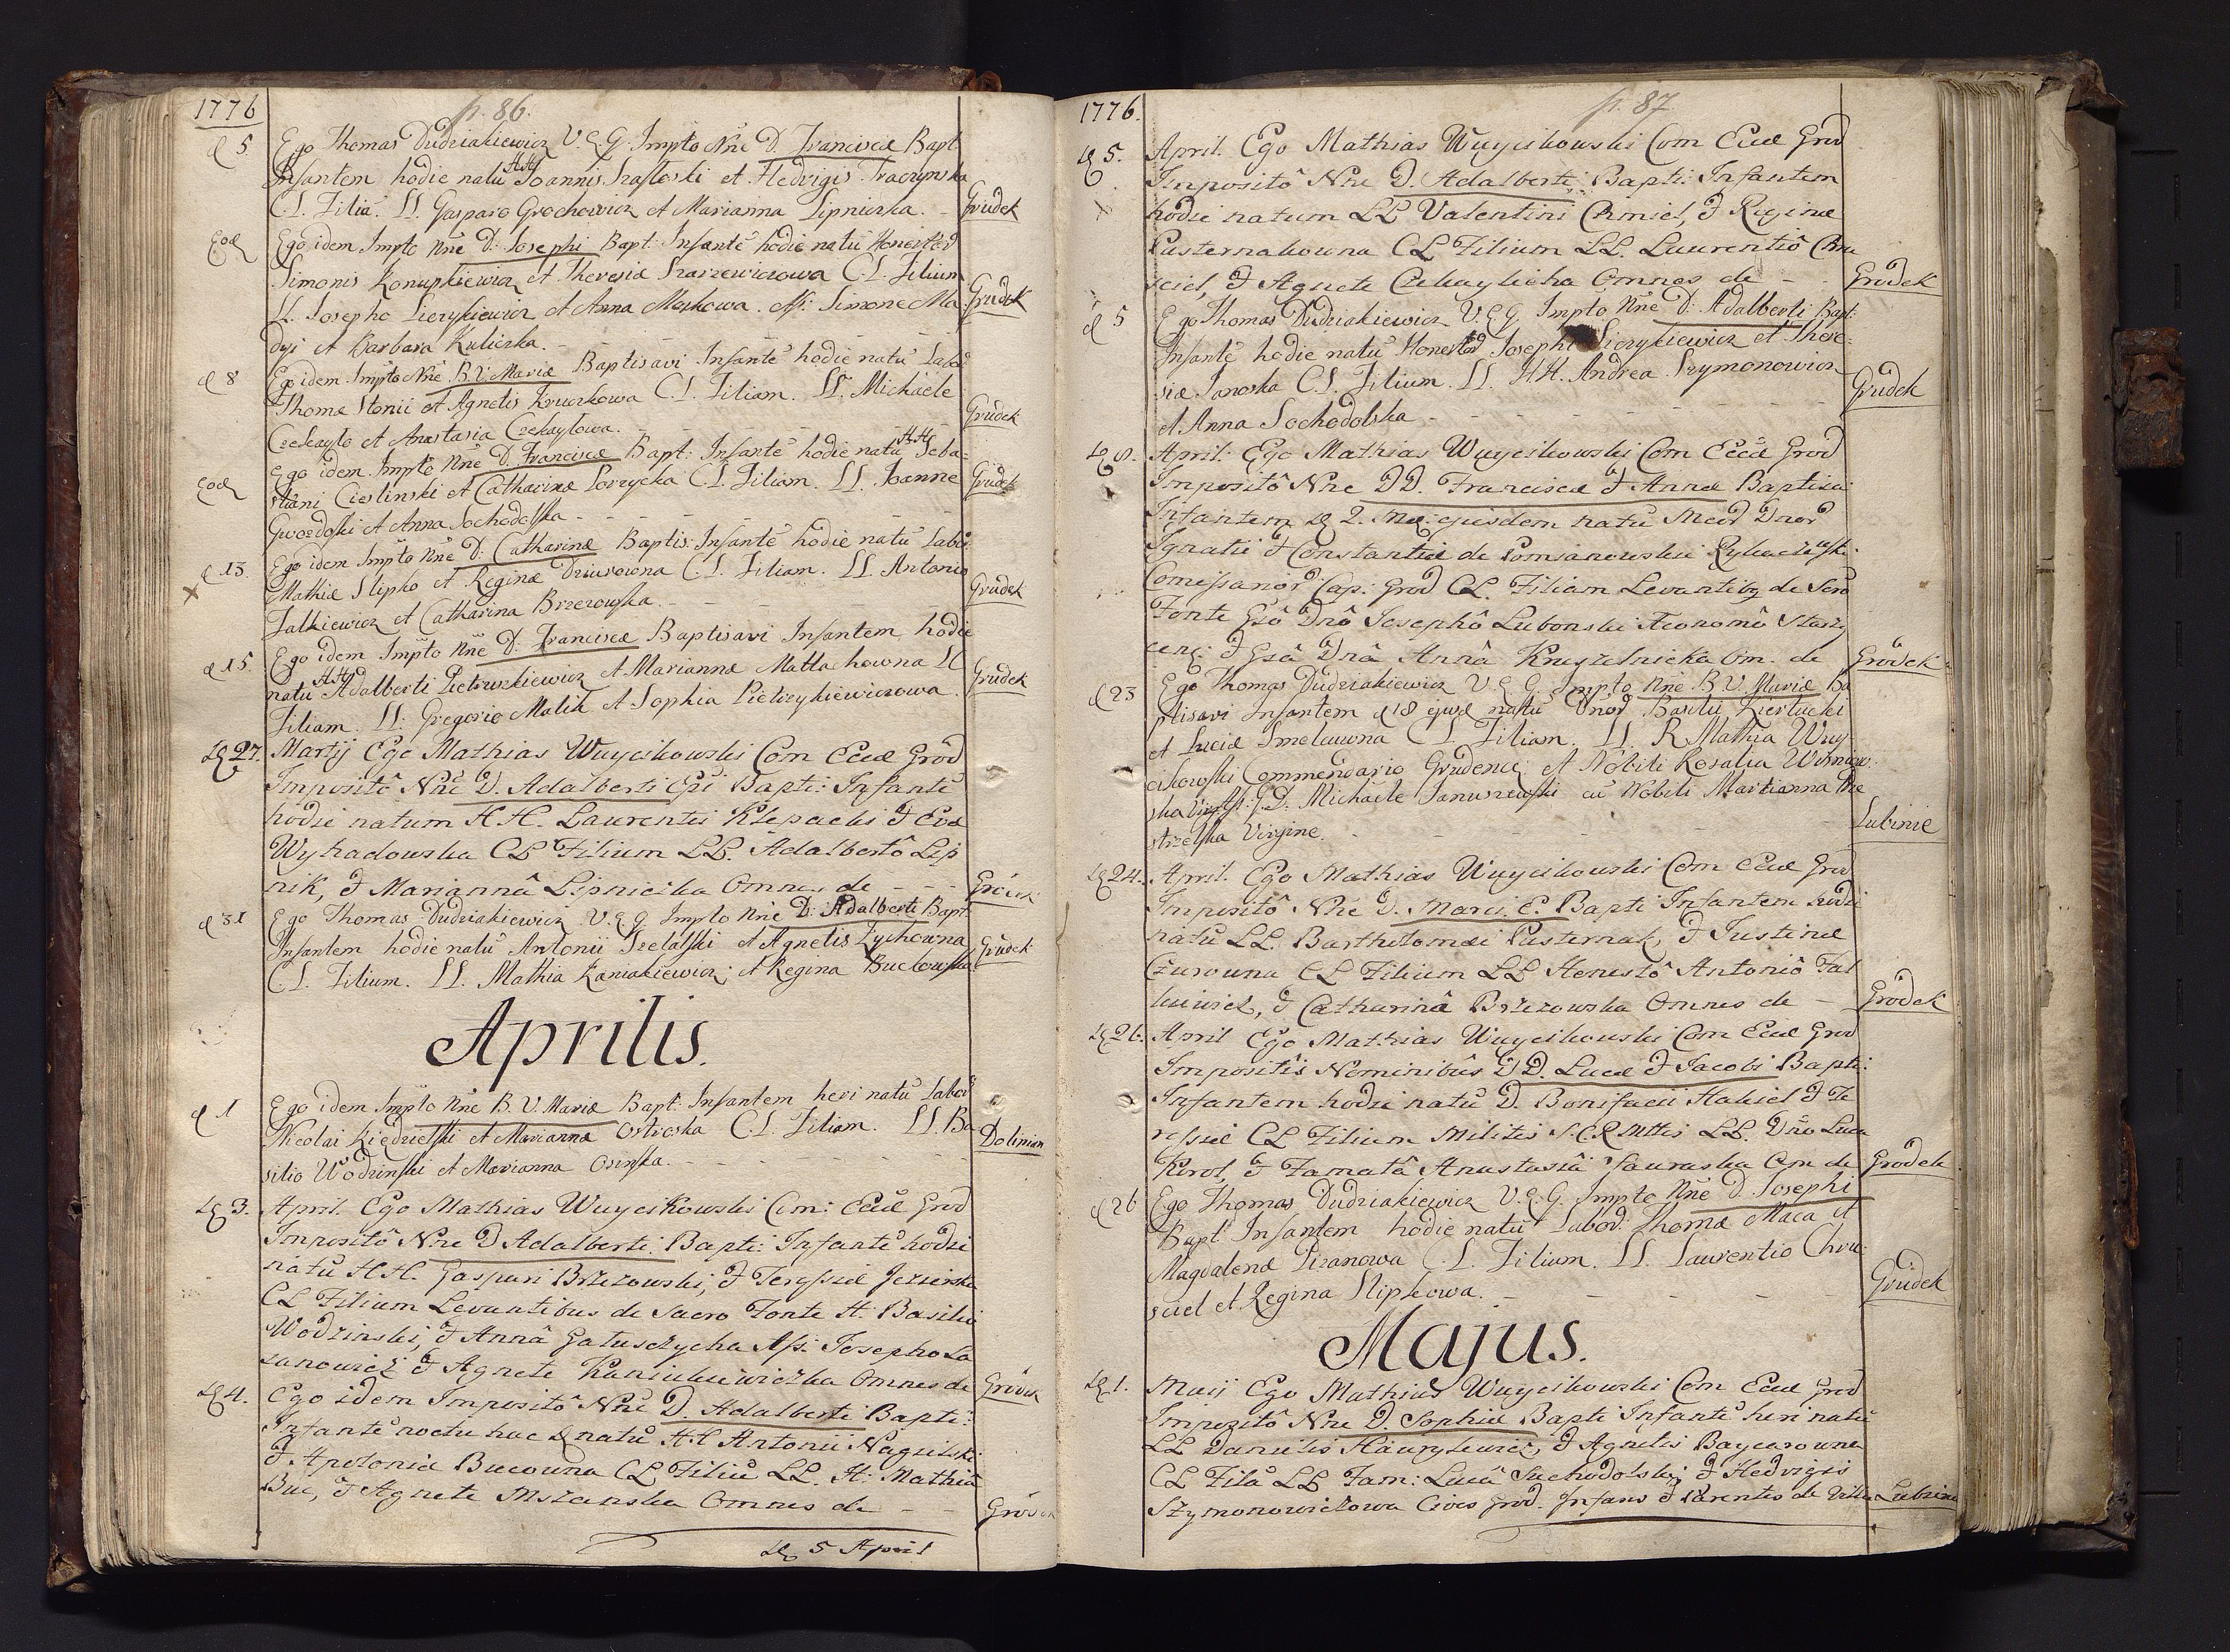 1776
p. 86.
d 5. Ego Thomas Dudziakiewicz V. E. G. Impto Nñe D. Franciscæ Bapt
Infantem hodie natũ HH Joannis Szafloski et Hedvigis Traczynska
C. L. Filiã. LL. Gasparo Grochowicz et Marianna Lipniczka. - Grudek
Eod Ego idem Impto Nñe D: Josephi Bapt: Infantẽ hodie natũ Honestor
Simonis Konupkiewicz et Theresiæ Szarzewiczowa C. L. Filium
LL. Josepho Lierykiewicz et Anna Mozkowa. Ass: Simone Ma Grudek
dysi et Barbara Kuliczka. - - -
d 8 Ego idem Impto Nñe B. V. Mariæ Baptisavi Infantẽ hodie natũ Labor
Thomæ Stonii et Agnetis Kruczkowa C. L. Filiam. LL. Michaele
Czekaylo et Anastasia Czekaylowa. - - Grudek
Eod Ego idem Impto Nñe D. Franciscæ Bapt: Infantẽ hodie natũ HH Seba-
stiani Cieslinski et Catharinæ Porzycka C. L. Filiam. LL. Joanne Grudek
Gwozdoski et Anna Sochodolska - - -
d 13 Ego idem Impto Nñe D: Catharinæ Baptis: Infantẽ hodie natũ Labor
x Mathiæ Slipko et Reginæ Dziurowna C. L. Filiam. LL. Antonio
Falkiewicz et Catharina Brzezowska. - - Grudek
d 15. Ego idem Impto Nñe D: Franciscæ Baptisavi Infantem hodie
natũ HH Adalberti Pietruszkiewicz et Mariannæ Matlahowna C L Grudek
Filiam. LL: Gregorio Malik et Sophia Pietrzykiewiczowa.
d 27. Martij Ego Mathias Wuycikowski Com Eccæ Grod
Impositô Nñe D. Adalberti Epi Bapti: Infantẽ
hodie natum HH. Laurentii Klepacki & Evæ
Wytradowska CL Filium LL. Adalbertô Lip
nik, & Mariannâ Lipniczka Omnes de - - - Gródek
d 31 Ego Thomas Dudziakiewicz V. E. G. Impto Nñe D: Adalberti Bapt
Infantem hodie natũ Antonii Szelalski et Agnetis Zychowna Grudek
C. L. Filium. LL. Mathia Kaniakiewicz et Regina Bucłowska
Aprilis.
d 1 Ego idem Impto Nñe B. V. Mariæ Bapt: Infantem heri natũ Labor
Nicolai Kiędzielski et Marianna Ostroska C. L. Filiam. LL. Ba Dolinian
silio Wodzinski et Marianna Osinska. - - -
d 3. April. Ego Mathias Wuycikowski Com: Eccæ Grod
Impositô Nñe D Adalberti Bapti: Infantẽ hodie
natũ HH. Gaspari Brzezowski, & Teressiæ Jezierska
CL Filium Levantibus de Sacro Fonte H. Basilio
Wodzinski, & Annâ Gatuszczycha Ass: Josepho La
zanowicz & Agnete Kaniukiewiczka Omnes de Gródek
d 4. Ego idem Impositô Nñe D. Adalberti Bapti:
Infantẽ noctu hac & natũ HH Antonii Naguilski
& Apoloniæ Bucowna CL Filiũ LL. H: Mathiâ
Buc, & Agnete Mszanska Omnes de - - Gródek
d 5 April
1776.
p. 87
d 5. April. Ego Mathias Wuycikowski Com Eccæ Grod
Impositô Nñe D. Adalberti Bapti: Infantem
hodie natum LL Valentini Chmiel, & Reginæ
Pasternakowna CL Filium LL. Laurentiô Chru
sciel, & Agnete Czekaylicha Omnes de - - Grodek
d 5 Ego Thomas Dudziakiewicz V. E. G. Impto Nñe D: Adalberti Bapt:
Infantẽ hodie natũ Honestor Josephi Lierykiewicz et There-
siæ Janoska C. L. Filium. LL. HH. Andrea Szymonowicz Grudek
et Anna Sochodolska - - - -
d 8. April: Ego Mathias Wuycikowski Com Eccæ Grod
Impositô Nñe DD. Franciscæ & Annæ Baptisa
Infantem d 2. Mẽ: ejusdem natũ Mcor Dnor
Ignatii & Constantiæ de Pomianowskie
Comissanor Cap: Grod CL. Filiam Levantibg de Sero
Fonte Gsô Dnô Josephô Lubonski Œconomô Starzy
cenę: & Gsâ Dnâ Annâ Kruszelnicka Om. de Gródek
d 23 Ego Thomas Dudziakiewicz V. E. G. Impto Nñe B. V. Mariæ Ba
ptisavi Infantem d 18 ejusd natũ Dnor Basilii Ziertucki
et Luciæ Smelcowna C L Filiam. LL R. Mathia Wuy
cikowski Commendario Grudenci et Nobili Rosalia Wisniow-
ska Virg: Ass: G. D. Michaele Januszewski cũ Nobili Marianna
strzelska Virgine. - - - Lubinie
d 24. April. Ego Mathias Wuycikowski Com Eccæ Grod
Impositô Nñe D. Marci. E. Bapti Infantem hodie
natũ LL. Bartholomæi Pasternak, & Justinæ
Czurowna CL Filium LL Honestô Antoniô Fal
kiewicz, & Catharinâ Brzezowska Omnes de - Grodek
d 26. April Ego Mathias Wuycikowski Com Eccæ Grod
Impositis Nominibûs DD. Lucæ & Jacobi Bapti:
Infantem hodie natũ D. Bonifacii Hakiel & Te
ressiæ CL Filium Militis S. C. R Mttis LL. Dño Luca
Korol, & Famatâ Anastasiâ Sauraska Om de Grodek
d 26 Ego Thomas Dudziakiewicz V. E. G. Impto Nñe D. Josephi
Bapt Infantem hodie natũ Labor: Thomæ Maca et
Magdalenæ Pizanowa C. L. Filium. LL. Laurentio Chru-
sciel et Regina Slipkowa. - - - Grudek
Majus.
d 1. Maij Ego Mathias Wuycikowski Com Eccæ Grod
Impositô Nñe D. Sophiæ Bapti Infantẽ heri natũ
LL Danielis Hawrylewicz, & Agnetis Baycarowna
CL Filã LL Fam: Lucâ Suchodolski & Hedvigis
Szymonowiczowa Cives Grod. Infans & Parentes de Villa Lubzina